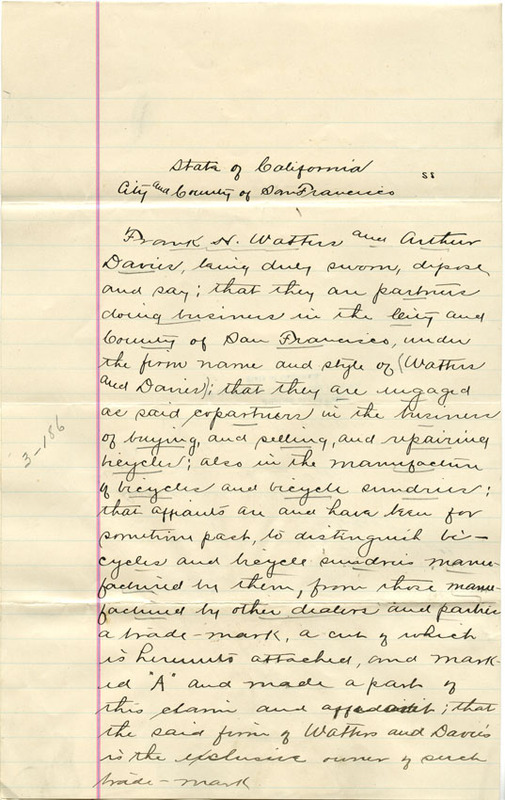 State of California
ss
City and County of San Francisco
Frank N. Watters and Arthur
Davies, being duly sworn, depose
and say; that they are partners
doing business in the City and
County of San Francisco, under
the firm name and style of (Watters
and Davies); that they are engaged
as said copartners in the business
of buying, and selling, and repairing
bicycles; also in the manufacture
of bicycles and bicycle sundries;
that affiants are and have been for
sometime past, to distinguish bi-
cycles and bicycle sundries manu-
factured by them, from those manu-
factured by other dealers and parties
a trade-mark, a cut of which
is hereunto attached, and mark-
ed "A" and made a part of
this claim and affidavit; that
the said firm of Watters and Davies
is the exclusive owner of such
trade-mark
3-156